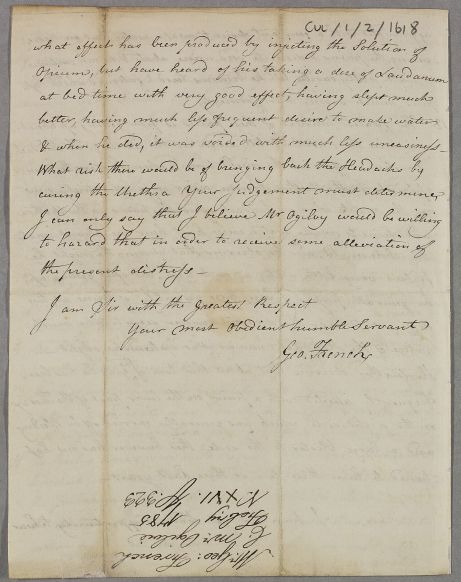 CUL/1/2/1618
what effects has been produced by injecting the Solution of
Opium, but have heard of his taking a dose of Laudanum
at bed time with very good effect, having slept much
better, having much less frequent desire to make water
& when he did, it was voided with much less uneasiness –
What risk there would be of bringing back the Headachs by
curing the Urethra Your Judgement must determine,
I can only say that I believe Mr Ogilvy would be willing
to hazard that in order to receive some alleviation of
the present distress –
I am Sir with the greatest Respect
Your most Obedient humble Servant
Geo. French
Mr Geo: French
C. Mr Ogilvie
1785
V. XVII.